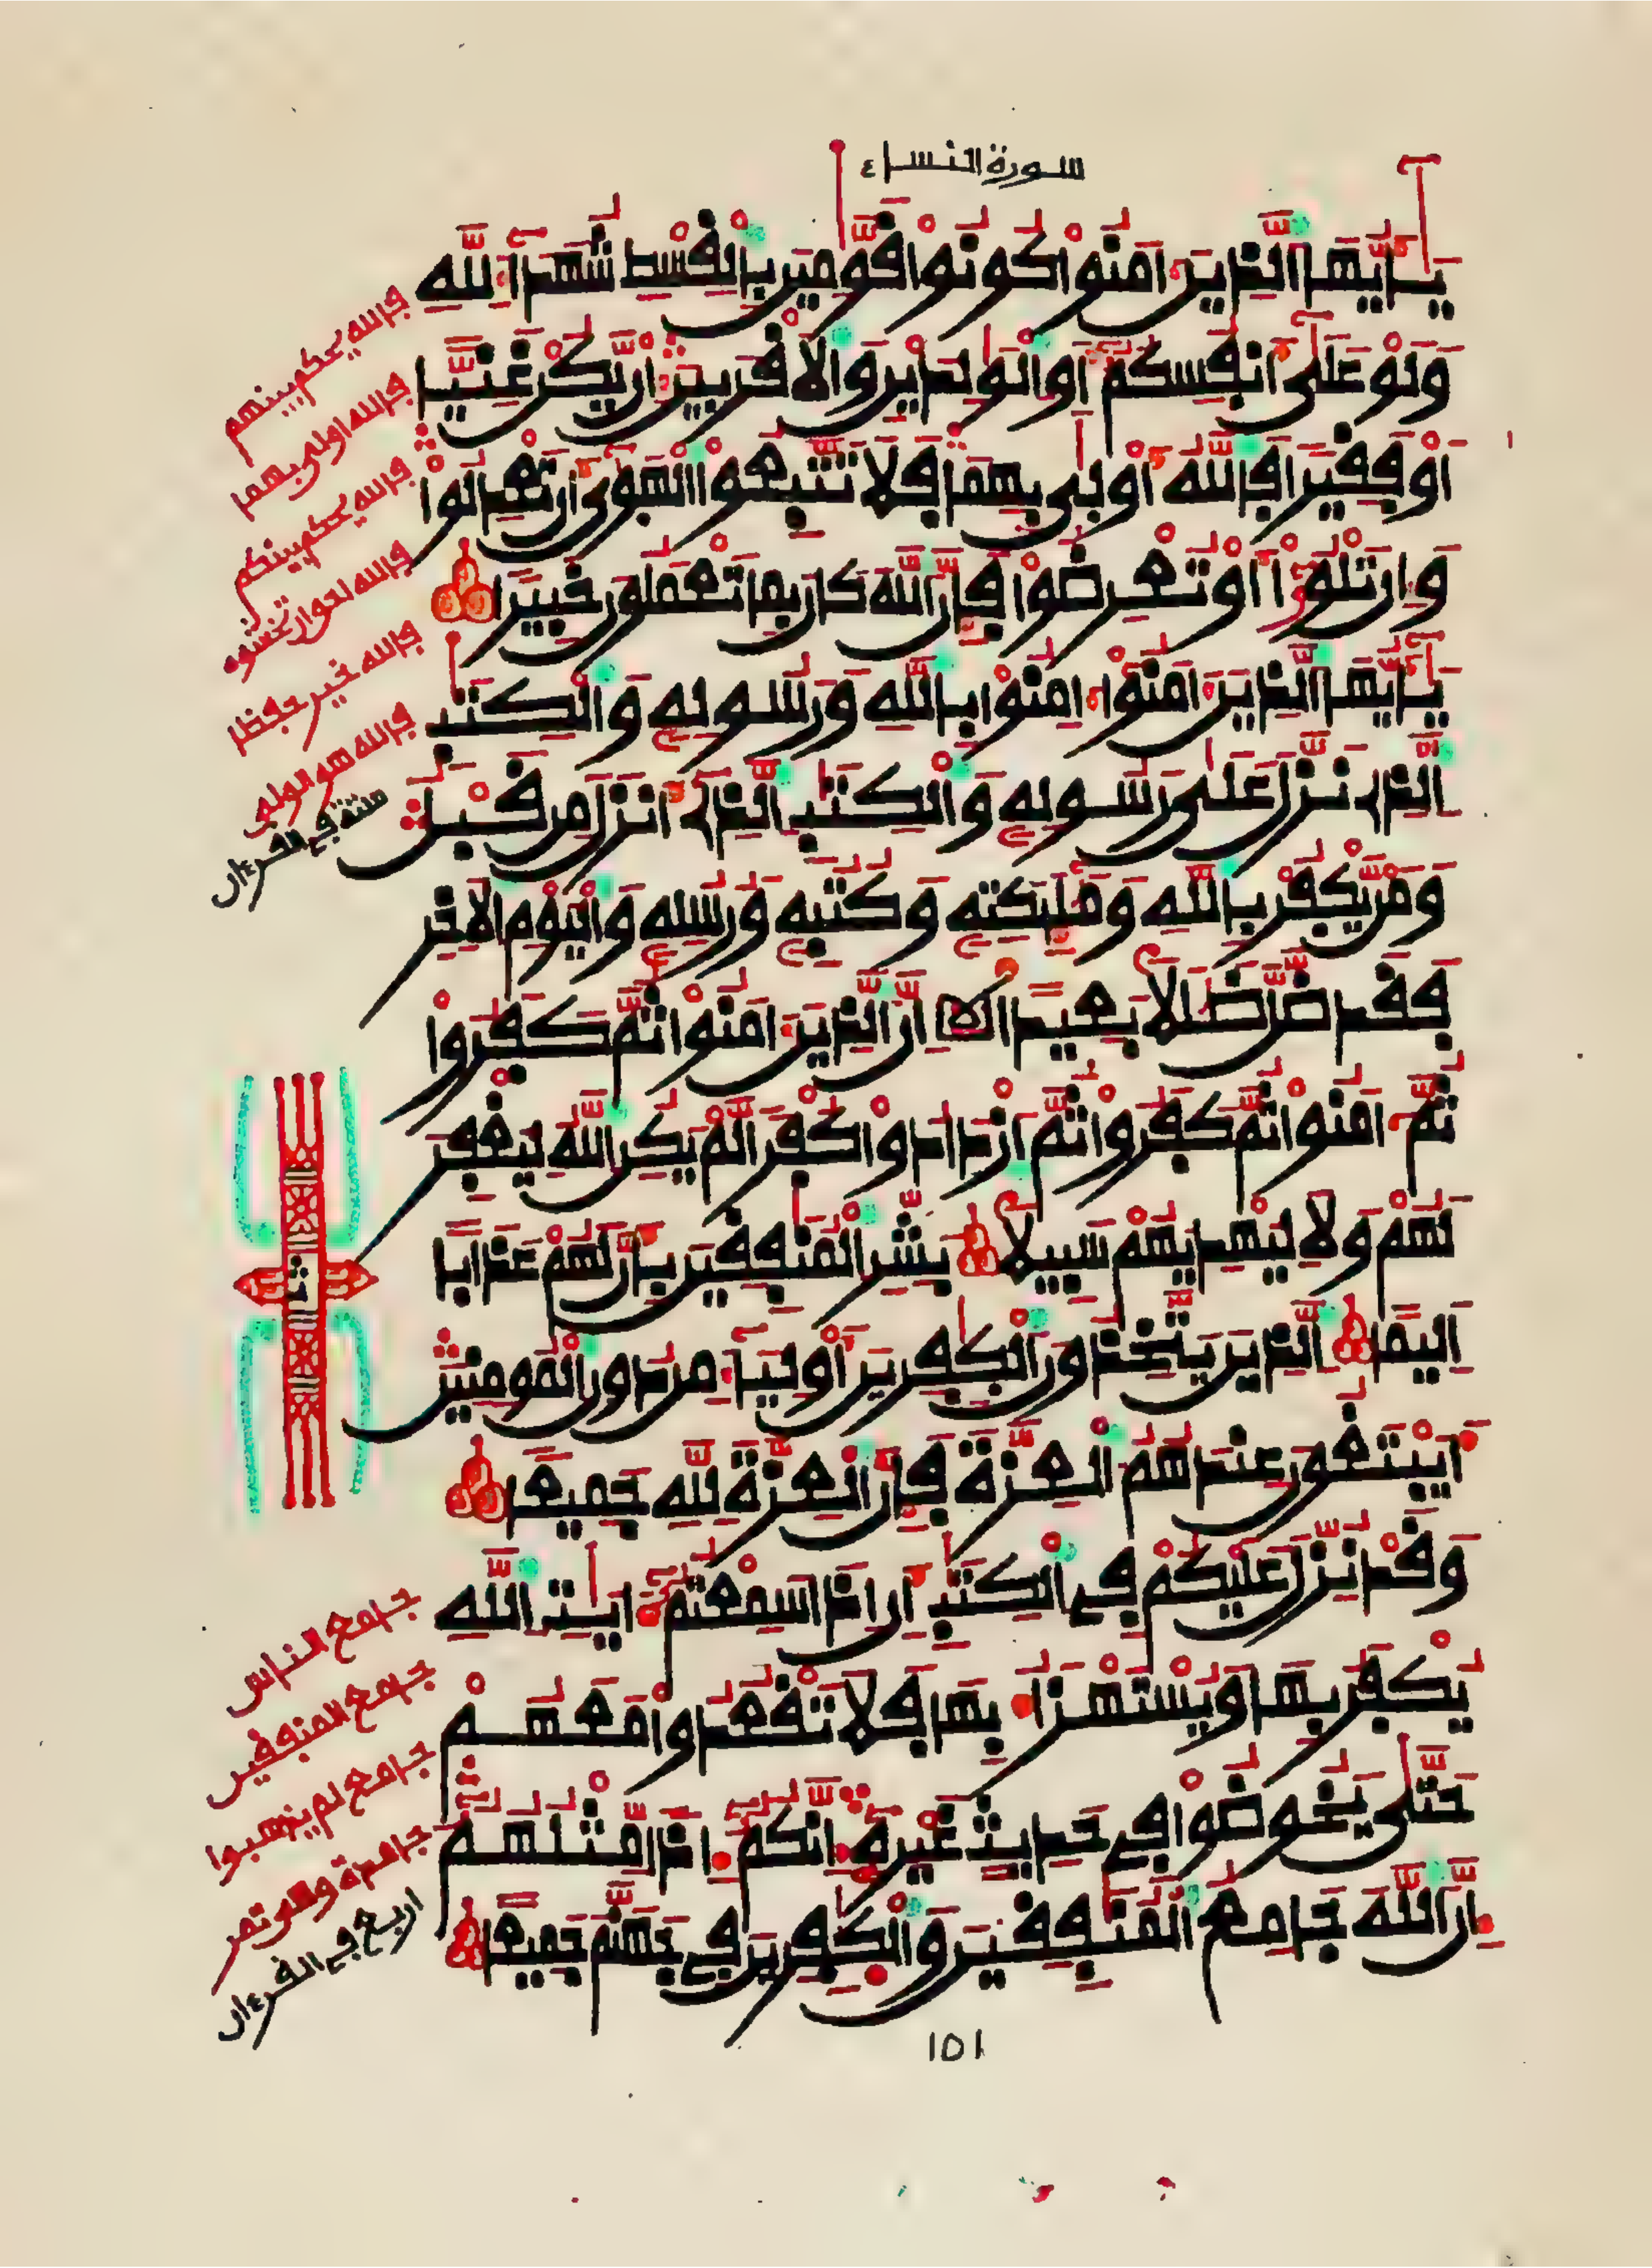 سورة النساء ٤
يَٰأَيُّهَا ٱلذِينَ ءَامَنُواْ كُونُواْ قَوَّٰمِينَ بِالْقِسْطِ شُهَدَآءَ لِلهِ
وَلَوْ عَلَىٰ أَنفُسِكُمْ أَوِ ٱلْوَٰلِدَيْنِ وَٱلَاقْرَبِينَ إِنْ يَّكُنْ غَنِيّاً
أَوْ فَقِيراً فَاللَّهُ أَوْلَىٰ بِهِمَا فَلَا تَتَّبِعُواْ ٱلْهَوَىٰ أَن تَعْدِلُواْ
وَإِن تَلْوُۥٓاْ أَوْ تُعْرِضُواْ فَإِنَّ ٱللَّهَ كَانَ بِمَا تَعْمَلُونَ خَبِيراً
يَٰأَيُّهَا ٱلذِينَ ءَامَنُوٓاْ ءَامِنُواْ بِاللَّهِ وَرَسُولِهِۦ وَٱلْكِتَٰبِ
ٱلذِے نَزَّلَ عَلَىٰ رَسُولِهِۦ وَٱلْكِتَٰبِ ٱلذِےٓ أَنزَلَ مِن قَبْلُ
وَمَنْ يَّكْفُرْ بِاللَّهِ وَمَلَٰٓئِكَتِهِۦ وَكُتُبِهِۦ وَرُسُلِهِۦ وَٱلْيَوْمِ ٱلَاخِرِ
فَقَد ضَّلَّ ضَلَٰلاً بَعِيداً إِنَّ ٱلذِينَ ءَامَنُواْ ثُمَّ كَفَرُواْ
ثُمَّ ءَامَنُواْ ثُمَّ كَفَرُواْ ثُمَّ ٱزْدَادُواْ كُفْراً لَّمْ يَكُنِ ٱللَّهُ لِيَغْفِرَ
لَهُمْ وَلَا لِيَهْدِيَهُمْ سَبِيلاً بَشِّرِ ٱلْمُنَٰفِقِينَ بِأَنَّ لَهُمْ عَذَاباً
أَلِيماً ٱلذِينَ يَتَّخِذُونَ ٱلْكَٰفِرِينَ أَوْلِيَآءَ مِن دُونِ ٱلْمُومِنِينَ
أَيَبْتَغُونَ عِندَهُمُ ٱلْعِزَّةَ فَإِنَّ ٱلْعِزَّةَ لِلهِ جَمِيعاً
وَقَدْ نُزِّلَ عَلَيْكُمْ فِے ٱلْكِتَٰبِ أَنِ اذَا سَمِعْتُمُۥٓ ءَايَٰتِ ٱللَّهِ
يُكْفَرُ بِهَا وَيُسْتَهْزَأُ بِهَا فَلَا تَقْعُدُواْ مَعَهُمْ
حَتَّىٰ يَخُوضُواْ فِے حَدِيثٍ غَيْرِهِۦٓ إِنَّكُمُۥٓ إِذاً مِّثْلُهُمُۥٓ
إِنَّ ٱللَّهَ جَامِعُ ٱلْمُنَٰفِقِينَ وَٱلْكَٰفِرِينَ فِے جَهَنَّمَ جَمِيعاً
فالله يحكم بينهم
فالله اولى بهما
فالله يحكم بينكم
فالله احق ان تخشوه
فالله خير حفظا
فالله هو الولي
ستة في القرءان
ث
جامع الناس
جامع المنفقين
جامع لم يذهبوا
اربع في القرءان
١٥١